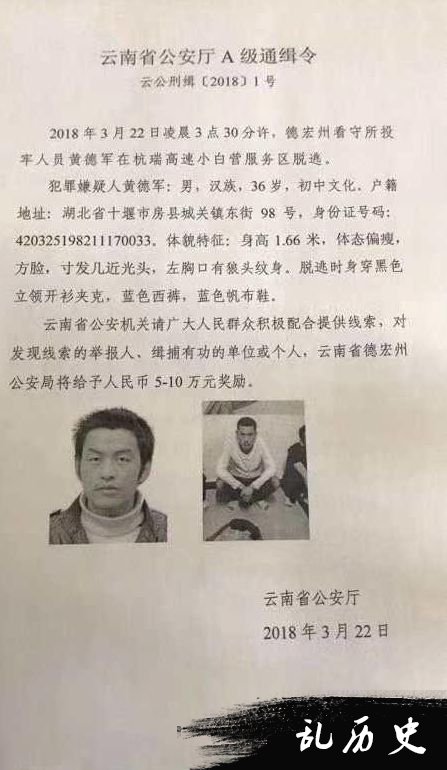 云南省公安厅 A 级通缉令
云公刑缉〔2018〕1 号
2018 年 3 月 22 日凌晨 3 点 30 分许，德宏州看守所投
牢人员黄德军在杭瑞高速小白营服务区脱逃。
犯罪嫌疑人黄德军：男，汉族，36 岁，初中文化。户籍
地址：湖北省十堰市房县城关镇东街 98 号，身份证号码：
420325198211170033。体貌特征：身高 1.66 米，体态偏瘦，
方脸，寸发几近光头，左胸口有狼头纹身。脱逃时身穿黑色
立领开衫夹克，蓝色西裤，蓝色帆布鞋。
云南省公安机关请广大人民群众积极配合提供线索，对
发现线索的举报人、缉捕有功的单位或个人，云南省德宏州
公安局将给予人民币 5-10 万元奖励。
云南省公安厅
2018 年 3 月 22 日
乱历史